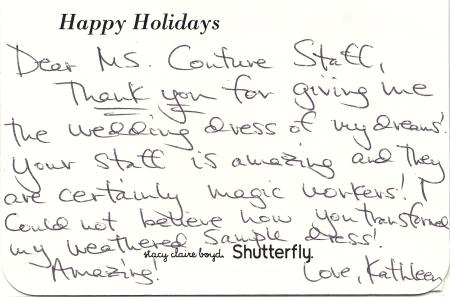 Happy Holidays
Dear MS. Couture Staff,
Thank you for giving me
the wedding dress of my dreams!
Your staff is amazing and they
are certainly magic workers! I
Could not believe how you transformed
my weathered Sample dress!
stacy claire boyd. Shutterfly.
Amazing! Love, Kathleen